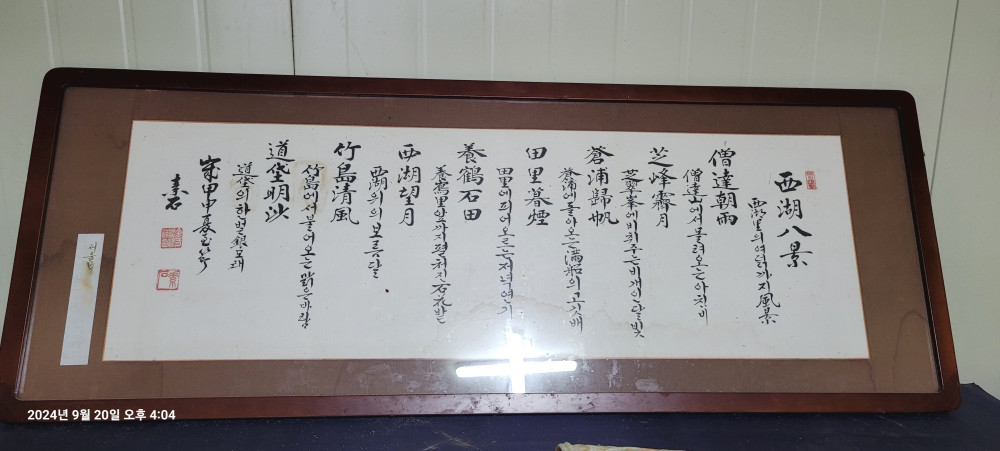 西湖八景
西湖里의 여덟까지 風景
僧達朝雨
僧達山에서 몰려오는 아침비
芝峰霽月
芝翠峯에 비치주는 비개인 달빛
蒼浦歸帆
蒼浦에 돌아오는 滿船의 고깃배
田里暮煙
田里에 피어오르는 저녁연기
養鶴石田
養鶴里 앞까지 펼처진 石花밭
西湖望月
西湖위의 보름달
竹島清風
竹島에서 불어오는 맑은바람
道垈明沙
道垈의 한벌 銀모래
歲甲申夏至節
素石
2024년 9월 20일 오후 4:04